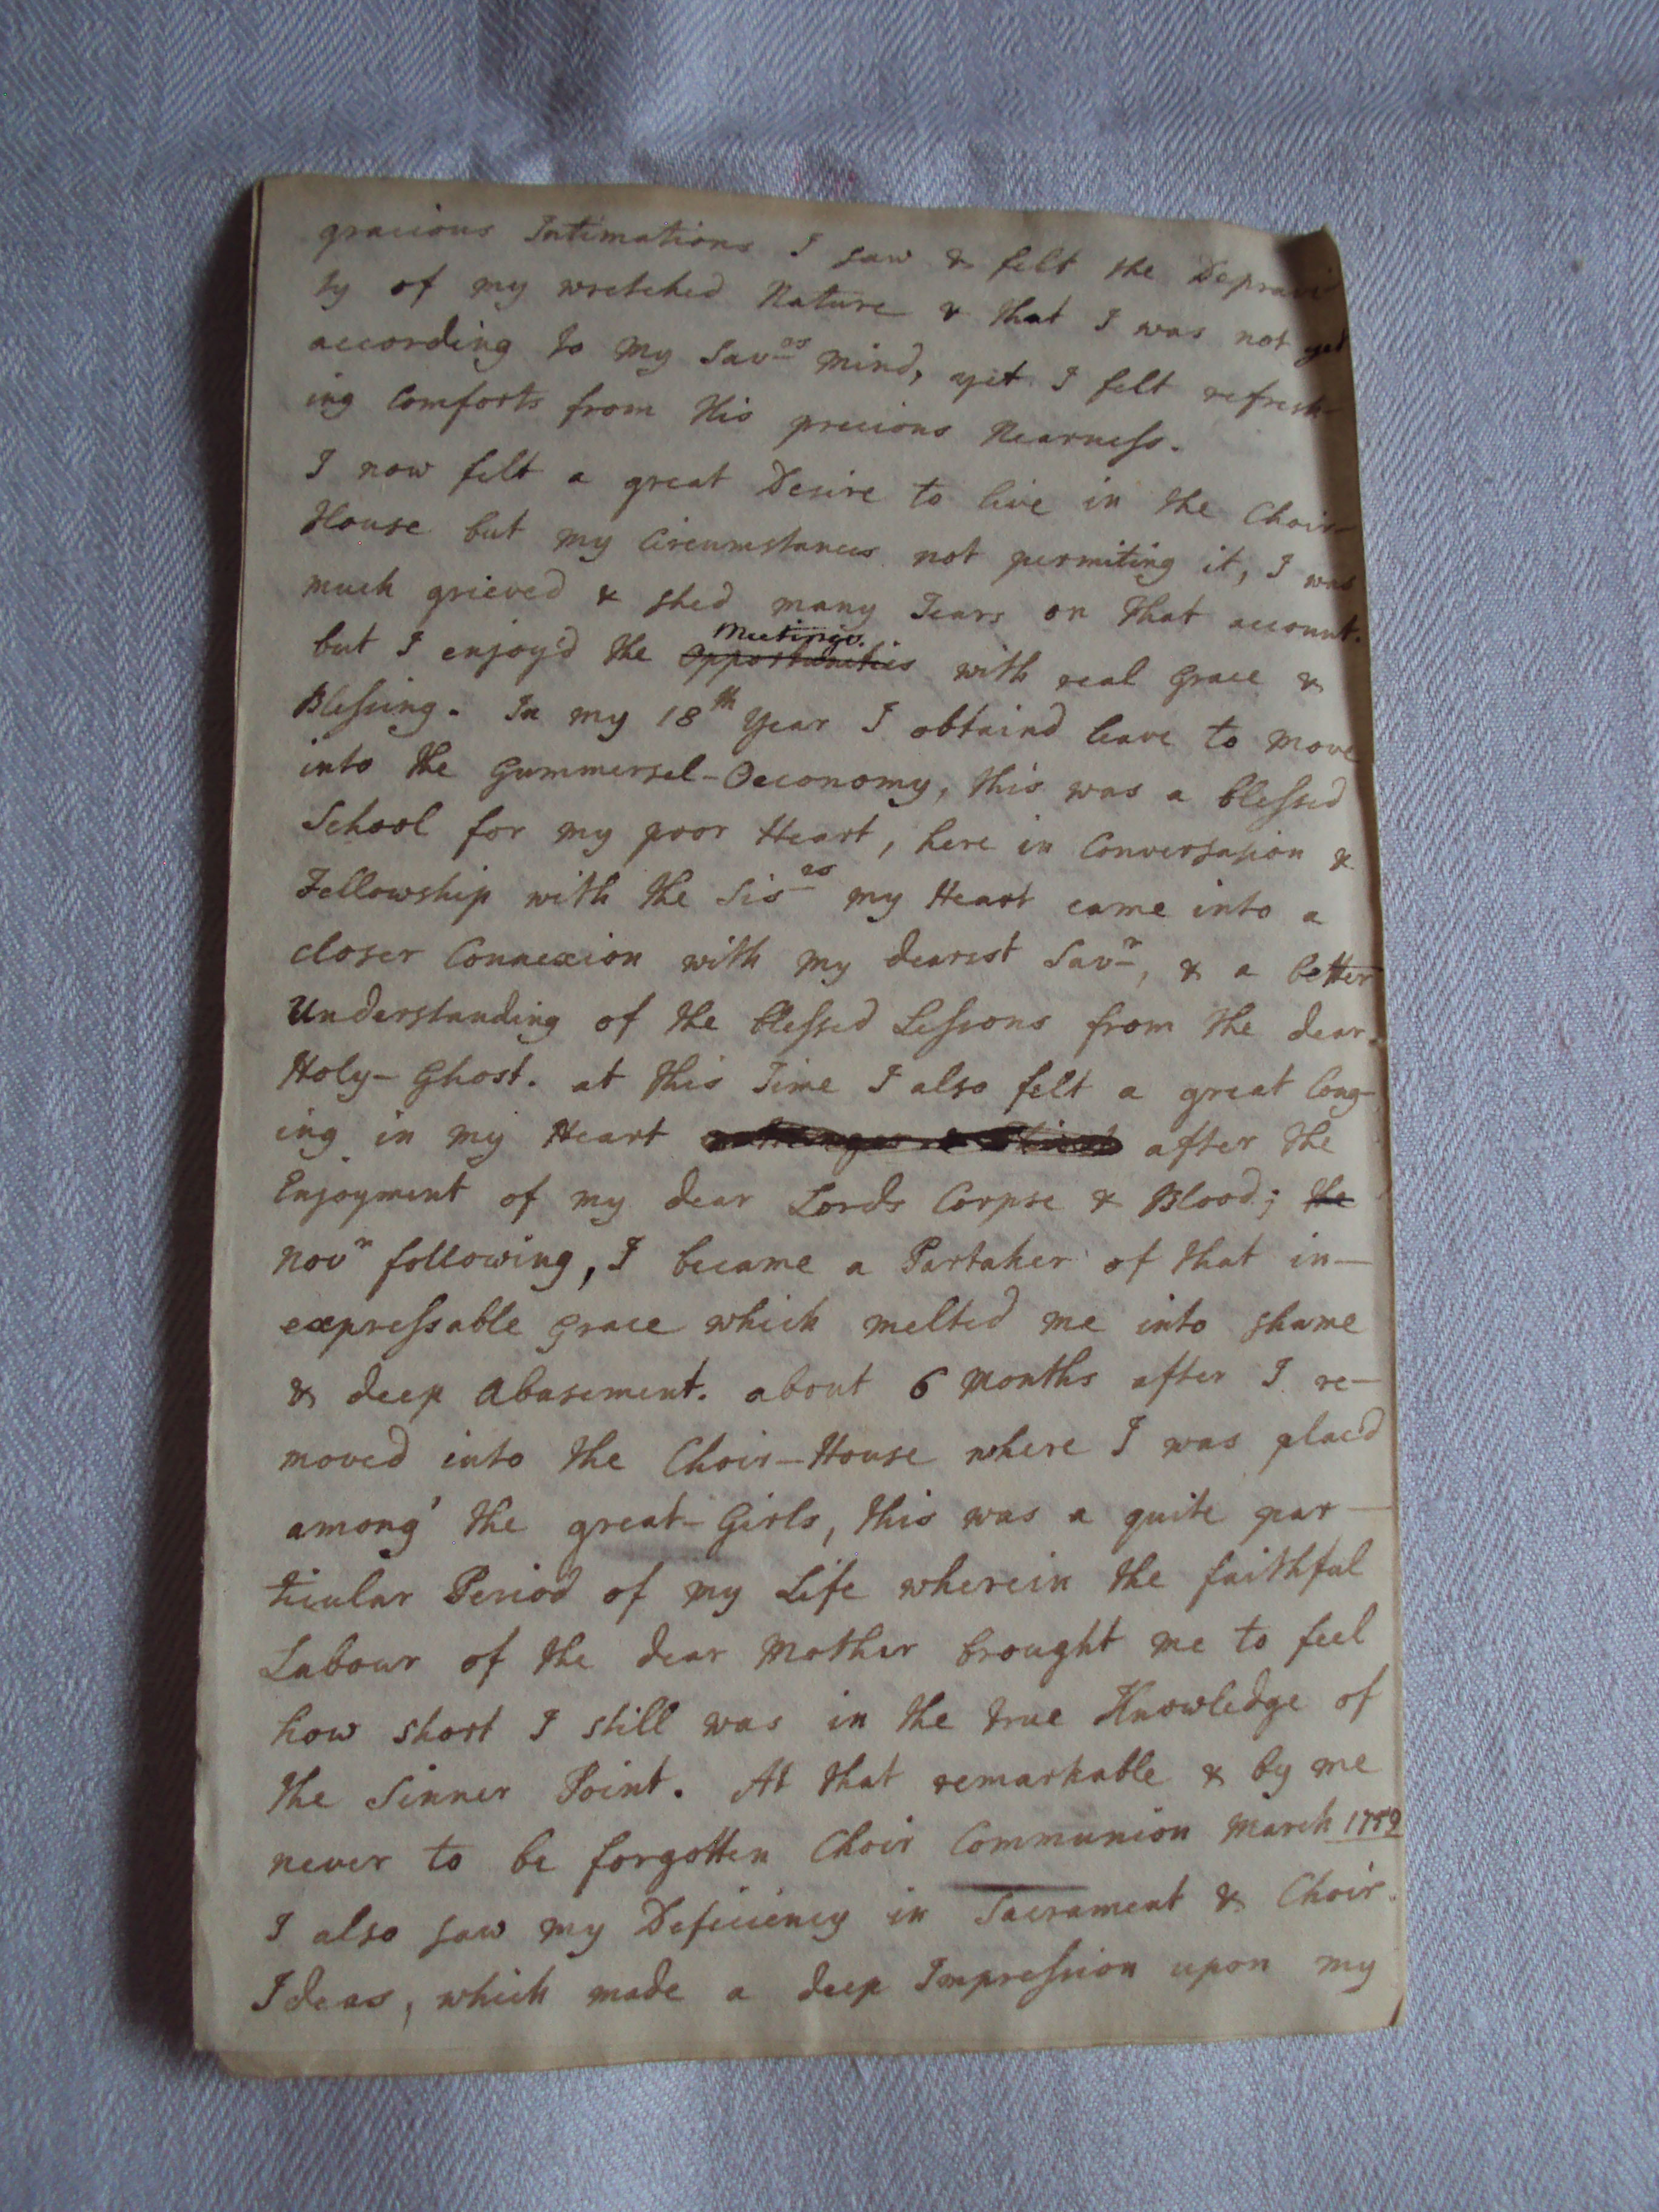 gracious Intimations I saw & felt the Depravi
ty of my wretched Nature & that I was not yet
according to my Savrs mind, yet I felt refresh-
ing Comforts from His precious Nearness.
I now felt a great Desire to live in the Choir-
House but my Circumstances not permiting it, I was
much grieved & shed many Tears on that account.
Meetings.
but I enjoy'd the Opportunities with real Grace &
Blessing. In my 18th Year I obtaind leave to move
into the Gummersel-Oeconomy, this was a blessed
School for my poor Heart, here in Conversasion &
Fellowship with the Sisrs my Heart came into a
closer Connexion with my dearest Savr, & a better
Understanding of the blessed Lessons from the dear
Holy-Ghost. at this Time I also felt a great long-
ing in my Heart after the
Enjoyment of my dear Lords Corpse & Blood; the
Novr following, I became a Partaker of that in-
expressable Grace which melted me into shame
& deep Abasement. about 6 Months after I re-
moved into the Choir-House where I was plac'd
among' the great-Girls, this was a quite par-
ticular Period of my Life wherein the faithful
Labour of the dear Mother brought me to feel
how short I still was in the true Knowledge of
the Sinner Point. At that remarkable & by me
never to be forgotten Choir Communion March
I also saw my Deficiency in Sacrament & Choir.
Ideas, which made a deep Impression upon my